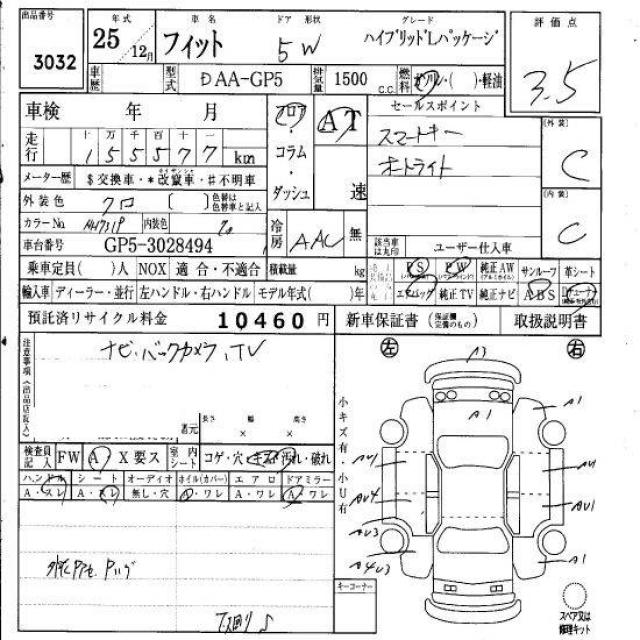 出品番号 3032
年式 25/12月
車名 フィット
ドア 形状 5W
グレード ハイブリッドLパッケージ
評価点 3.5
車歴
型式 DAA-GP5
排気量 1500 C.C.
燃料 ガソリン・( )・軽油
車検 年 月
走行 十万千百十一
155577 km
フロア・コラム・ダッシュ
AT 速
セールスポイント
スマートキー
オートライト
[外装] C
[内装] C
メーター歴 $交換車・*改竄車・#不明車
外装色 クロ [ ] 色替は色替車と記入
カラーNo. NH731P 内装色
冷房 AAC 無
車台番号 GP5-3028494
該当車は丸印 ユーザー仕入車
乗車定員( )人 NOX 適合・不適合 積載量 kg
PS PW 純正AW サンルーフ 革シート
輸入車 ディーラー・並行 左ハンドル・右ハンドル モデル年式( )年
エアバッグ 純正TV 純正ナビ ABS
預託済リサイクル料金 10460 円
新車保証書(保証書完備のもの) 取扱説明書
注意事項(出品店記入)
ナビ・バックカメラ、TV
諸元 長さ × 幅 × 高さ
検査員記入 FW A X 要ス
室内シート コゲ・穴・キズ・汚れ・破れ
ハンドル シート オーディオ ホイル(カバー) エアロ ドアミラー
A・スレ A・スレ 無し・穴 A・ワレ A・ワレ A・ワレ
下回り
左 右
小キズ有・小U有
A3
A1
A1
AU1
AU1
AU4
AU1
AU3
A4U3
A1
キーコーナー
スペア又は修理キット